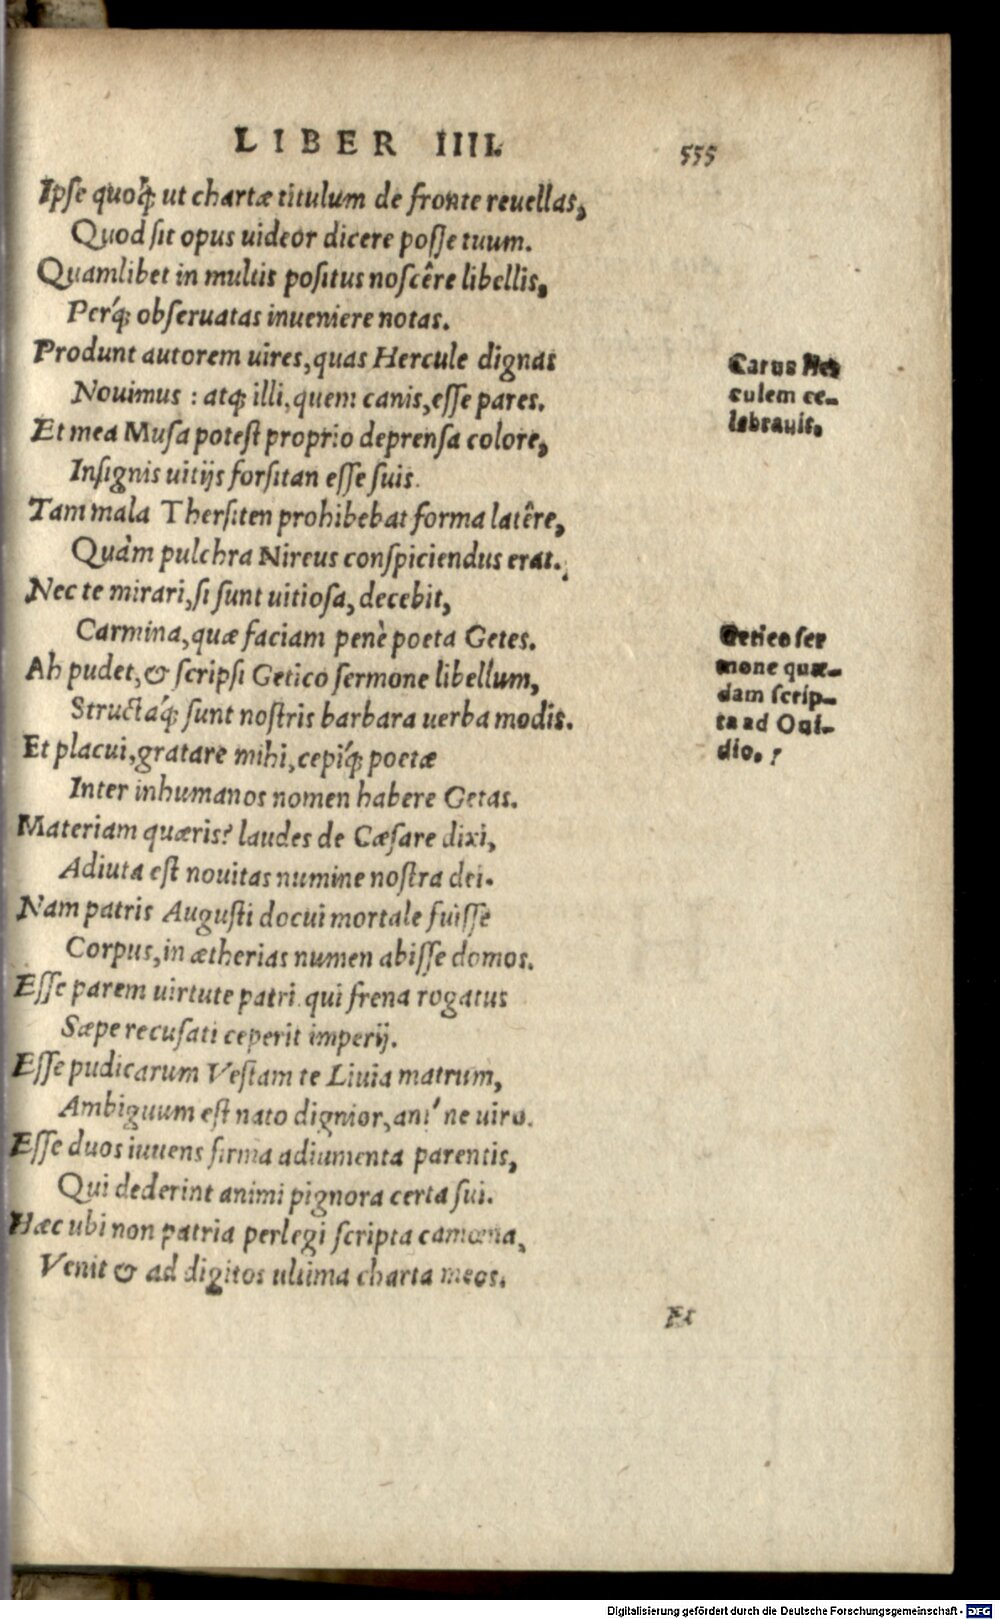 LIBER IIII.
555
Ipse quoq́; ut chartæ titulum de fronte reuellas,
Quod sit opus uideor dicere posse tuum.
Quamlibet in multis positus noscêre libellis,
Perq́; obseruatas inueniere notas.
Produnt autorem uires, quas Hercule dignas
Nouimus : atq; illi, quem canis, esse pares.
Et mea Musa potest proprio deprensa colore,
Insignis uitijs forsitan esse suis.
Tam mala Thersiten prohibebat forma latêre,
Quàm pulchra Nireus conspiciendus erat.
Nec te mirari, si sunt uitiosa, decebit,
Carmina, quæ faciam penè poeta Getes.
Ah pudet, & scripsi Getico sermone libellum,
Structaq́; sunt nostris barbara uerba modis.
Et placui, gratare mihi, cepiq́; poetæ
Inter inhumanos nomen habere Getas.
Materiam quæris? laudes de Cæsare dixi,
Adiuta est nouitas numine nostra dei.
Nam patris Augusti docui mortale fuisse
Corpus, in ætherias numen abisse domos.
Esse parem uirtute patri qui frena rogatus
Sæpe recusati ceperit imperij.
Esse pudicarum Vestam te Liuia matrum,
Ambiguum est nato dignior, an' ne uiro.
Esse duos iuuens firma adiumenta parentis,
Qui dederint animi pignora certa sui.
Hæc ubi non patria perlegi scripta camœna,
Venit & ad digitos ultima charta meos.
Carus Her
culem ce-
lebrauit.
Getico ser
mone quæ-
dam scrip-
ta ad Oui-
dio. ?
Et
Digitalisierung gefördert durch die Deutsche Forschungsgemeinschaft - DFG